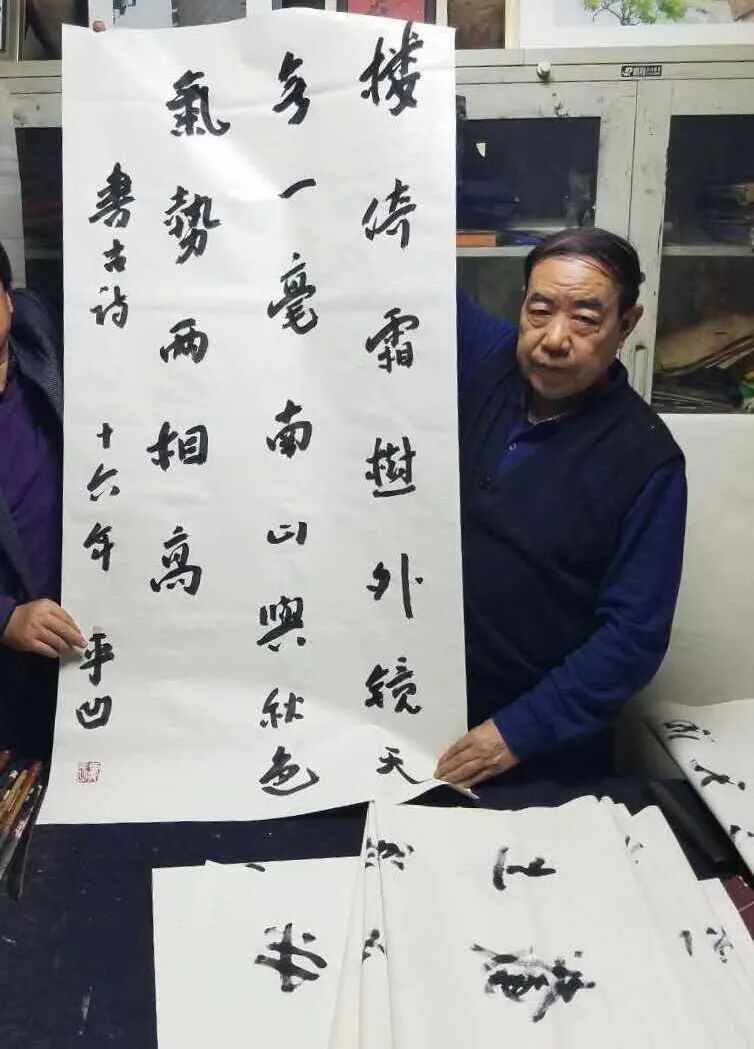 楼倚霜樹外镜天
無一毫南山與秋色
氣勢两相高
書古詩 十六年 平凹